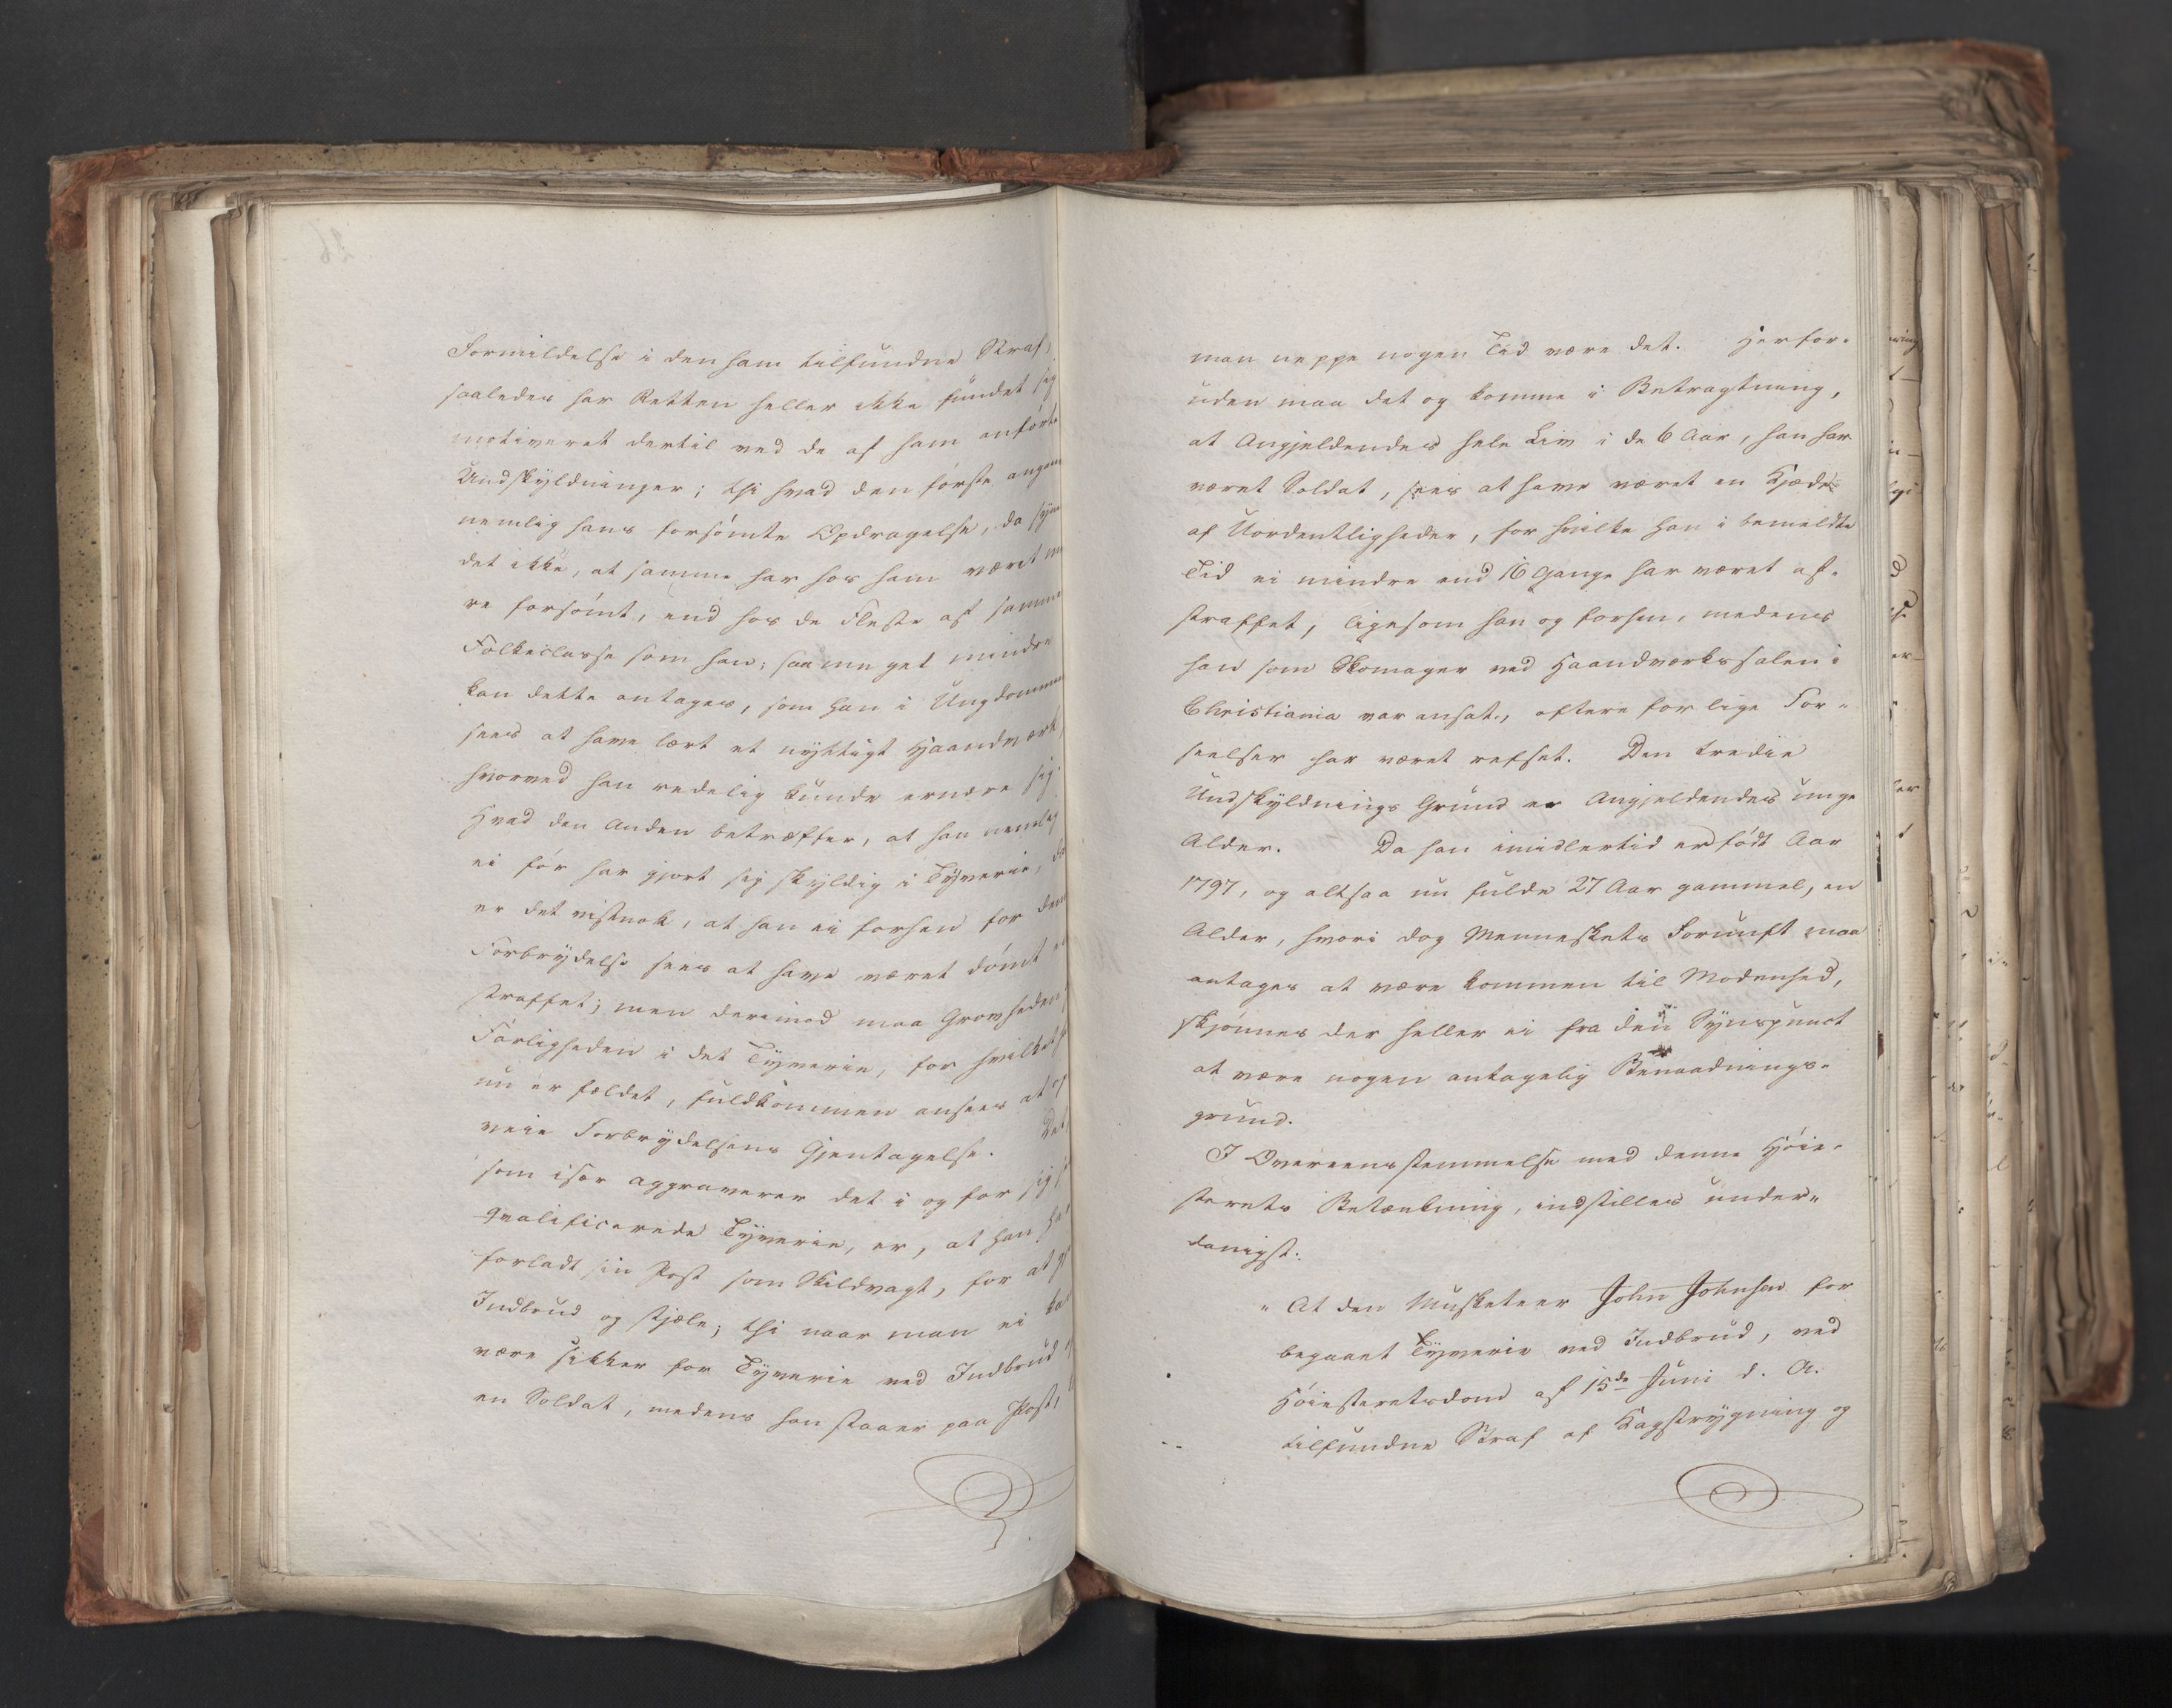 Formildelse i den ham tilfundne Straf,
saaledes har Retten heller ikke fundet sig
motiveret dertil ved de af ham anførte
Undskyldninger; thi hvad den første angaaer
nemlig hans forsømte Opdragelse, da synes
det ikke, at samme har hos ham været me
re forsømt, end hos de Fleste af samme
Folkeclasse som han; saameget mindre
kan dette antages, som han i Ungdommen
sees at have lært et nyttigt Haandværk,
hvorved han redelig kunde ernære sig.
Hvad den Anden betræffer, at han nemlig
ei før har gjort sig skyldig i Tyverie, da
er det vistnok, at han ei forhen for denne
Forbrydelse sees at have været dømt
straffet; men derimod maa Grovheden
Farligheden i det Tyverie, for hvilket
nu er fældet, fuldkommen ansees at op
veie Forbrydelsens Gjentagelse. Det,
som især aggraverer det i og for sig
qvalificerede Tyverie, er, at han
forladt sin Post som Skildvagt, for at
Indbrud og stjæle; thi naar man ei kan
være sikker for Tyverie ved Indbrud
en Soldat, medens han staaer paa Post,
man neppe nogen Tid være det. Herfor-
uden maa det og komme i Betragtning,
at Angjeldendes hele Liv i de 6 Aar, han har
været Soldat, sees at have været en Kjæde
af Uordentligheder, for hvilke han i bemeldte
Tid ei mindre end 16 Gange har været af-
straffet; ligesom han og forhen, medens
han som Skomager ved Haandværkssalen i
Christiania var ansat, oftere for lige For-
seelser har været refset. Den tredie
Undskyldnings Grund er Angjeldendes unge
Alder. Da han imidlertid er født Aar
1797, og altsaa nu fulde 27 Aar gammel, en
Alder, hvori dog Menneskets Fornuft maa
antages at være kommen til Modenhed,
skjønnes der heller ei fra den Synspunct
at være nogen antagelig Benaadnings-
grund.
I Overeensstemmelse med denne Høie-
sterets Betænkning, indstilles under-
danigst:
"At den Musketeer John Johnsen for
begaaet Tyverie ved Indbrud, ved
Høiesteretsdom af 15de Juni d. A.
tilfundne Straf af Kagstrygning og